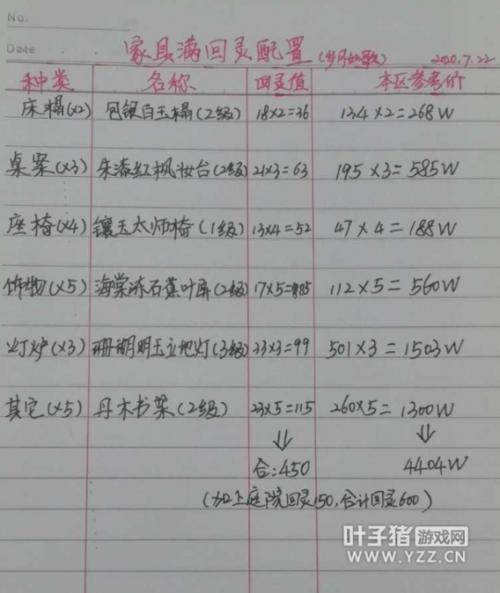 No.
Date
家具满回灵配置(岁月如歌) 2020.7.22
种类 名称 回灵值 本区参考价
床榻(x2) 包银白玉榻(2级) 18x2=36 134x2=268W
桌案(x3) 朱漆红枫妆台(2级) 21x3=63 195x3=585W
座椅(x4) 镶玉太师椅(1级) 13x4=52 47x4=188W
饰物(x5) 海棠冻石蕉叶屏(2级) 17x5=85 112x5=560W
灯炉(x3) 珊瑚明玉立地灯(3级) 33x3=99 501x3=1503W
其它(x5) 丹木书架(2级) 23x5=115 260x5=1300W
⇓ ⇓
合:450 4404W
(加上庭院回灵150,合计回灵600)
叶子猪游戏网
WWW.YZZ.CN